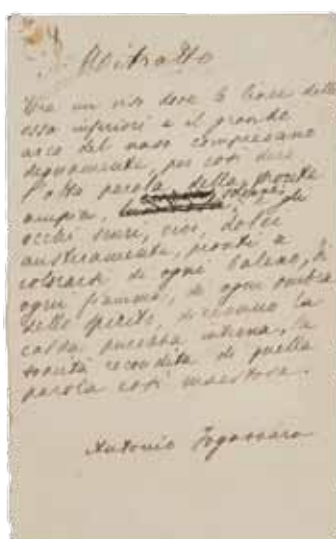 Ritratto
Era un viso dove le linee delle
ossa inferiori e il grande
arco del naso compievano
degnamente, per così dire
l'alta parola della fronte
ampia, gli
occhi scuri, vivi, dolci
austeramente, pronti a
colorarsi di ogni baleno, di
ogni fiamma, di ogni ombra
dello spirito, dicevano la
calda interna, la
bontà recondita di quella
parola così maestosa.
Antonio Fogazzaro